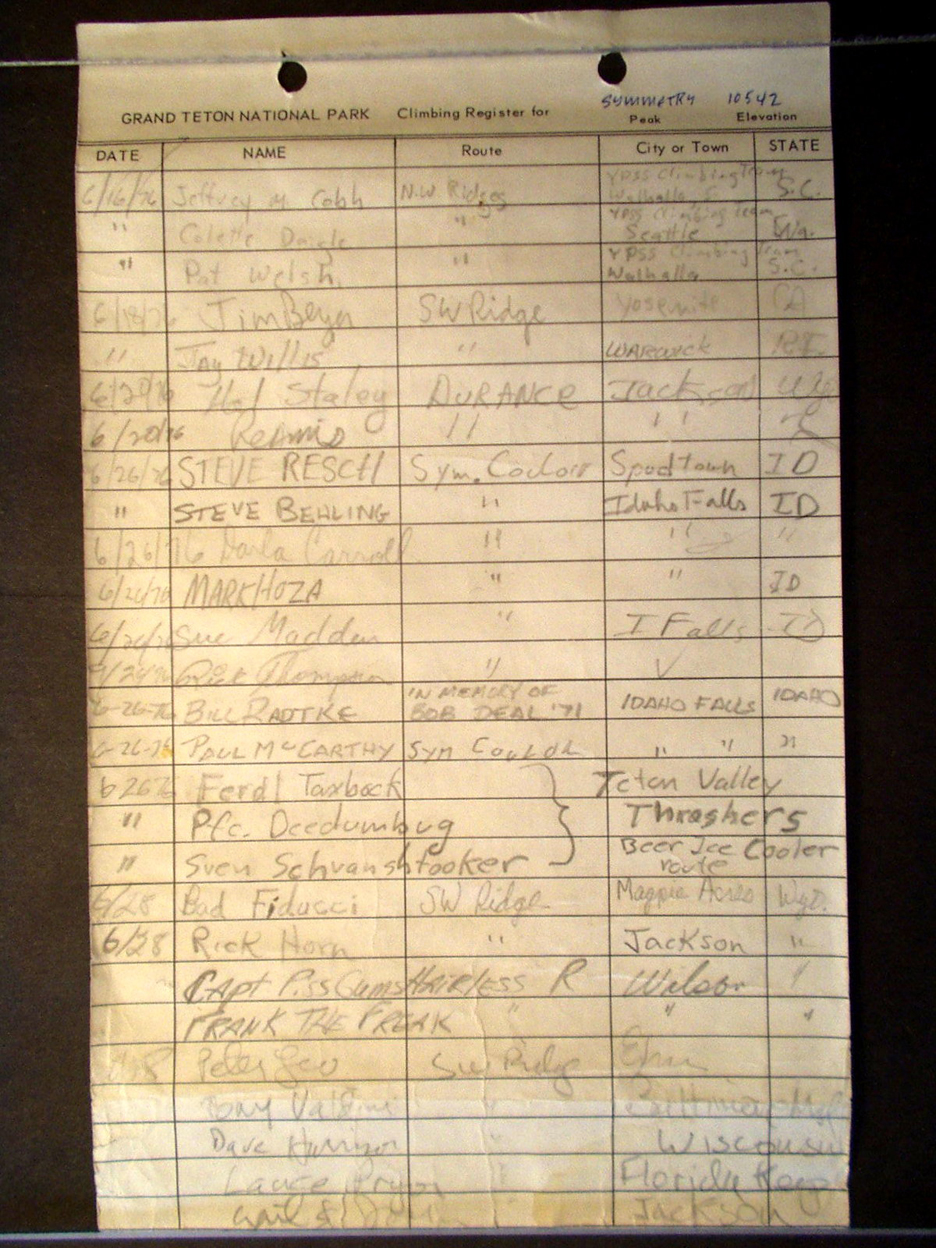 SYMMETRY 10542
GRAND TETON NATIONAL PARK Climbing Register for Peak Elevation
DATE NAME Route City or Town STATE
6/16/76 Jeffrey M. Cobb N.W. Ridges YPSS Climbing Team Walhalla S.C.
" Colette Daigle " YPSS Climbing Team Seattle Wa.
" Pat Welsh " YPSS Climbing Team Walhalla S.C.
6/18/76 Jim Beyer SW Ridge Yosemite CA
" Jay Willis " WARWICK R.I.
6/20/76 Hal Staley DURANCE Jackson Wy
6/20/76 " "
6/26/76 STEVE RESCH Sym. Couloir Spudtown ID
" STEVE BEHLING " Idaho Falls ID
6/26/76 Darla Carroll " " "
6/26/76 MARK HOZA " " ID
6/26/76 Sue Madden " I Falls ID
Rick Thompson "
6-26-76 BILL RADTKE IN MEMORY OF BOB DEAL '71 IDAHO FALLS IDAHO
6-26-76 PAUL McCARTHY SYM COULOR " " "
6 26 76 Ferdl Taxbock Teton Valley
" Pfc. Deedumbug Thrashers
" Sven Schvanshtooker Beer Ice Cooler route
6/28 Bad Fiducci SW Ridge Magpie Acres Wyo.
6/28 Rick Horn " Jackson "
Capt PissGums HAIRLESS R Wilson "
FRANK THE FREAK " " "
Peter SW Ridge
Tony "
Dave Harrison " Wisconsin
Lance Pryor " Florida Keys
Jackson